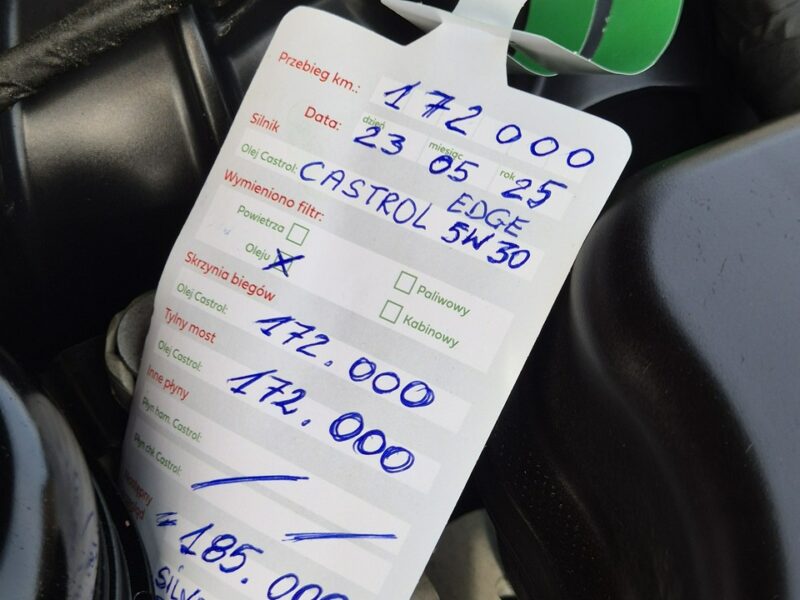 Przebieg km.: 172000
Data: dzień 23 miesiąc 05 rok 25
Silnik
Olej Castrol: CASTROL EDGE 5W30
Wymieniono filtr:
Powietrza
Oleju X
Paliwowy
Kabinowy
Skrzynia biegów
Olej Castrol: 172.000
Tylny most
Olej Castrol: 172.000
Inne płyny
Płyn ham. Castrol:
Płyn chł. Castrol:
185.000